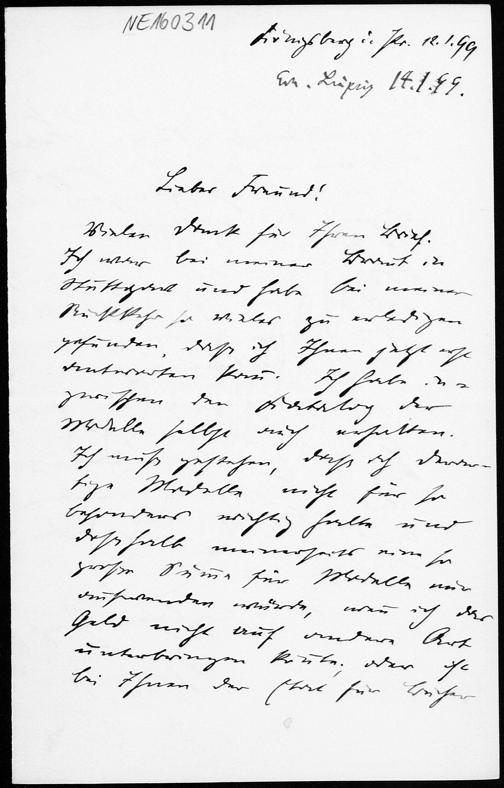 NE160311
Königsberg i. Pr. 12.1.99
Erh. Leipzig 14.1.99.
Lieber Freund!
Vielen Dank für Ihren Brief.
Ich war bei meiner Braut in
Stuttgart und habe bei meiner
Rückkehr so vieles zu erledigen
gefunden, dass ich Ihnen jetzt erst
antworten kann. Ich habe in-
zwischen den Katalog der
Modelle selbst auch erhalten.
Ich muss gestehen, dass ich derar-
tige Modelle nicht für so
besonders wichtig halte und
desshalb meinerseits eine so
grosse Summe für Modelle nur
aufwenden würde, wenn ich das
Geld nicht auf andere Art
unterbringen könnte; oder ist
bei Ihnen der Etat für Bücher